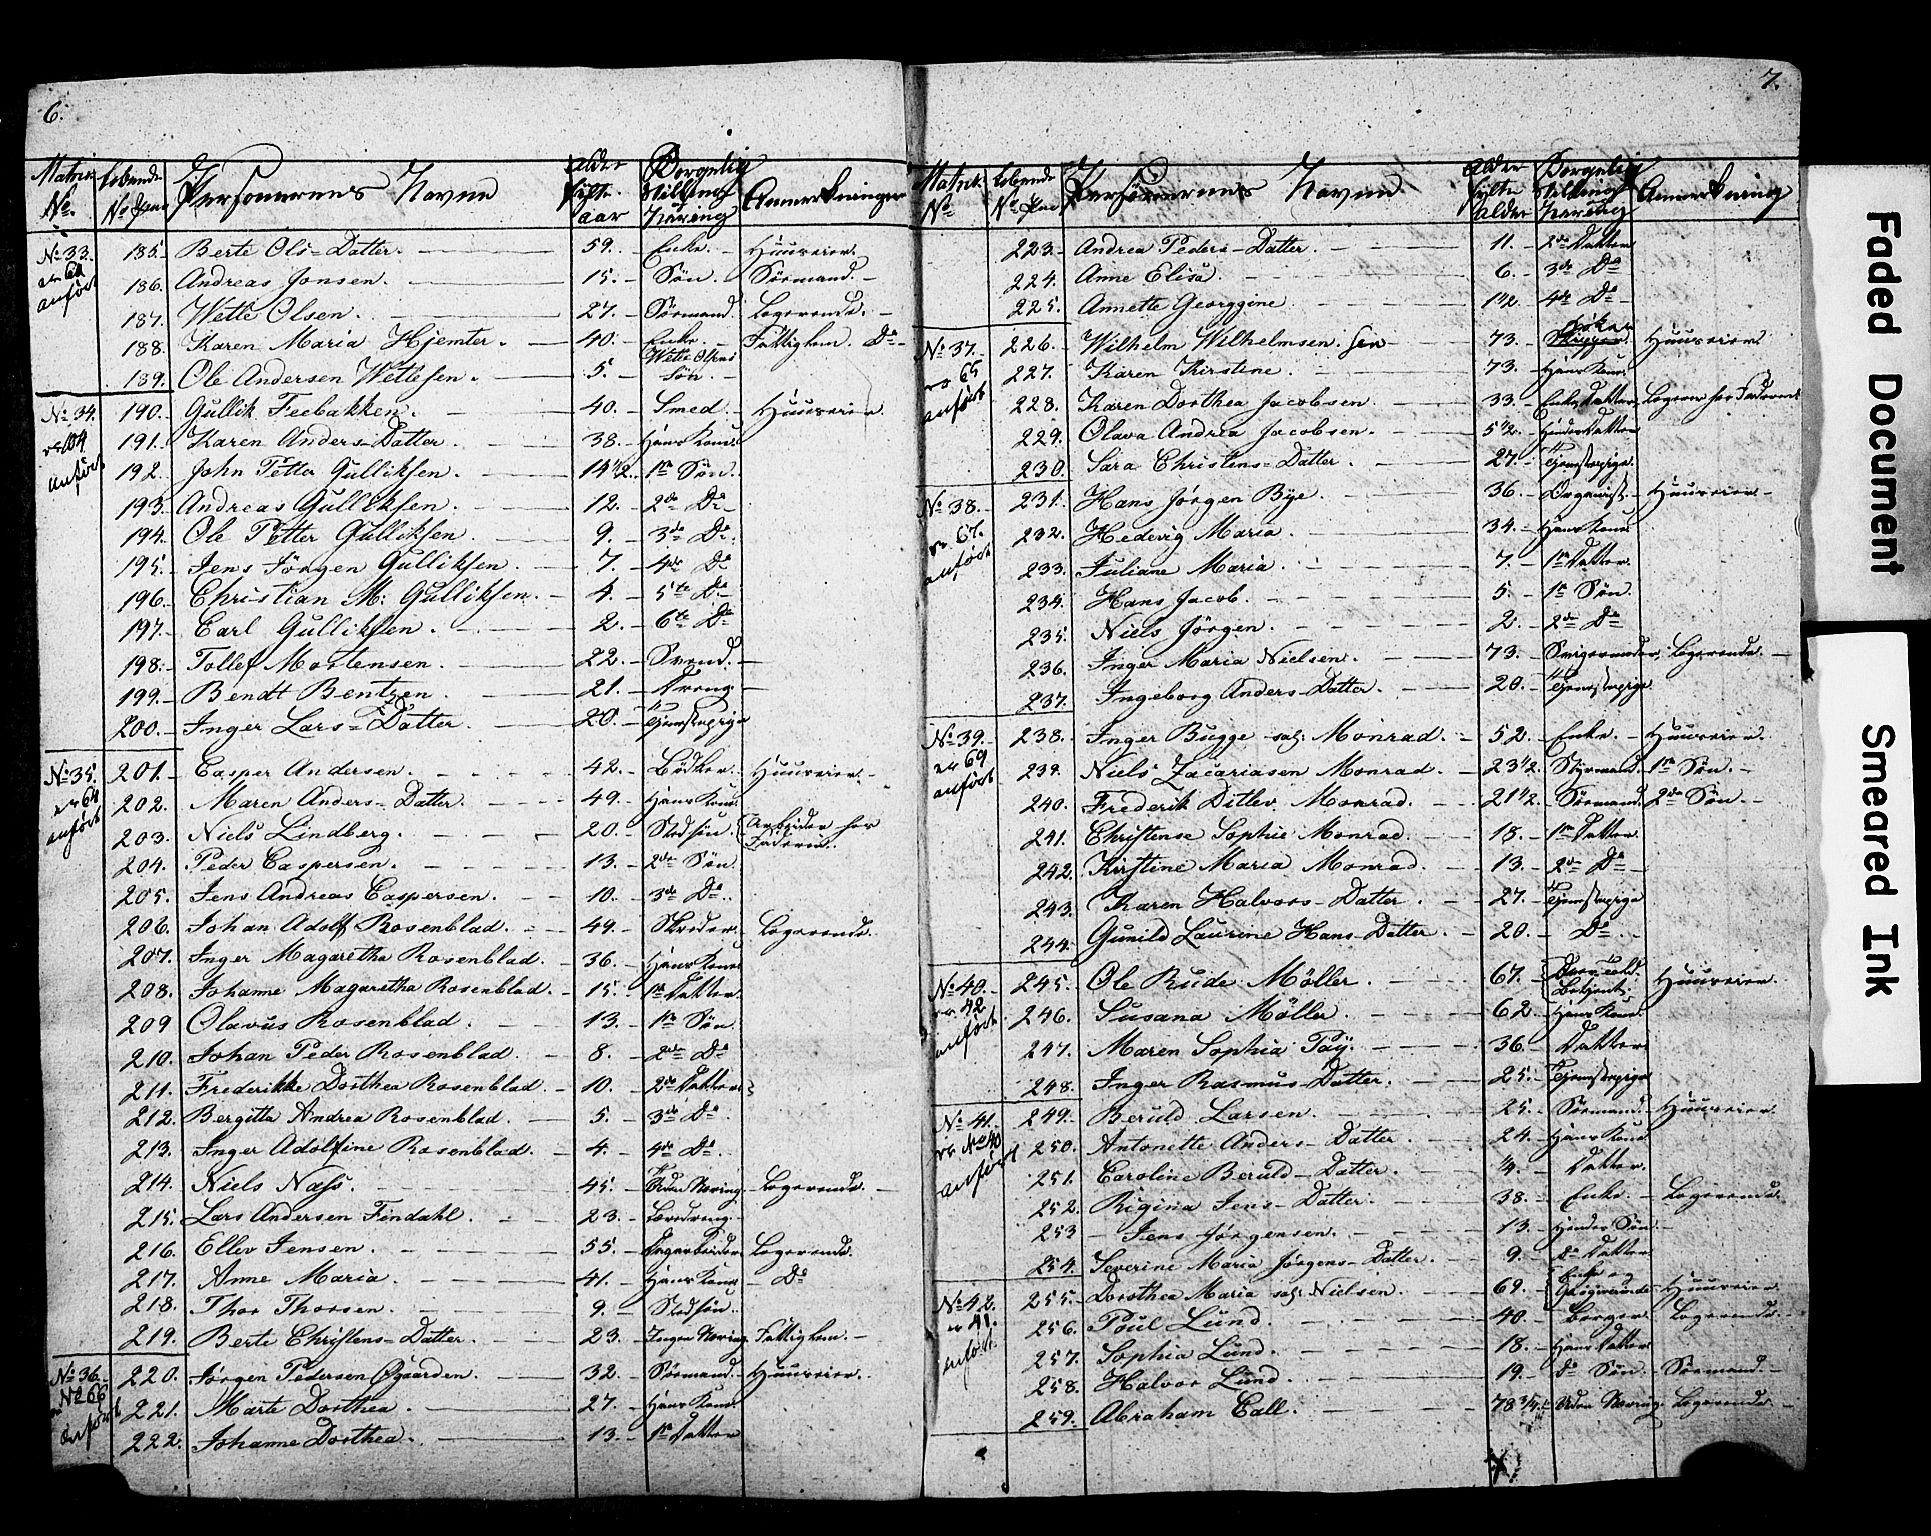 6.
Matric No. Løbende No. Personernes Navne Alder fyldte aar Borgelig Stilling Næring Anmerkninger
No 33. 185. Berte Ols-Datter. 59. Enke. Huuseier.
er 62 anført 186. Andreas Jonsen. 15. Søn. Sørmand.
187. Wette Olsen. 27. Sørmand. Logerende.
188. Karen Maria Hjemter. 40. Enke. Fattiglem. Do
189. Ole Andersen Wettesen. 5. Wette Olsens Søn.
No 34. 190. Gullik Feebakken. 40. Smed. Huuseier.
anført 191. Karen Anders-Datter. 38. Hans Kone.
192. John Petter Gulliksen. 14 1/2. 1te Søn.
193. Andreas Gulliksen. 12. 2de Do
194. Ole Petter Gulliksen. 9. 3de Do
195. Jens Jörgen Gulliksen. 7. 4de Do
196. Christian M: Gulliksen. 4. 5te Do
197. Carl Gulliksen. 2. 6te Do
198. Tollef Mortensen. 22. Svend.
199. Bendt Bentzen. 21. Dreng.
200. Inger Lars-Datter. 20. Tjenestepige
No 35. 201. Casper Andersen. 42. Bödker. Huuseier.
er 64 anført 202. Maren Anders-Datter. 49. Hans Kone.
203. Niels Lindberg. 20. Stedsøn. Arbeider hos Faderen.
204. Peder Caspersen. 13. 2de Søn.
205. Jens Andreas Caspersen. 10. 3de Do
206. Johan Adolf Rosenblad. 49. Skreder. Logerende.
207. Inger Magaretha Rosenblad. 36. Hans Kone
208. Johanne Magaretha Rosenblad. 15. 1te Datter.
209 Olavus Rosenblad. 13. 1te Søn.
210. Johan Peder Rosenblad. 8. 2de Do
211. Frederikke Dorthea Rosenblad. 10. 2de Datter
212. Bergitta Andrea Rosenblad. 5. 3de Do
213. Inger Adolfine Rosenblad. 4. 4de Do
214. Niels Næss. 45. Uden Næring. Logerende.
215. Lars Andersen Findahl. 23. Læredreng.
216. Ellev Jensen. 55. Logerende.
217. Anne Maria. 41. Hans Kone Do
218. Thor Thorsen. 9. Stedsøn.
219. Berte Christens-Datter. 23. Ingen Næring. Fattiglem.
No 36. 220. Jörgen Pedersen Øgaarden. 32. Sørmand. Huuseier.
No 66 anført 221. Marte Dorthea. 27. Hans Kone
222. Johanne Dorthea. 13. 1te Datter
7.
Matric No Løbende No Personernes Navne Alder fylte alder Borgelig Stilling Næring Anmerkning
223. Andrea Peders-Datter. 11. 2de Datter
224. Anne Elisa. 6. 3de Do
225. Annette Georggine. 1 1/2. 4de Do
No 37. 226. Wilhelm Wilhelmsen. Sen 73. Skipper Huuseier.
65 anført 227. Karen Kirstine. 73. Hans Kone.
228. Karen Dorthea Jacobsen. 33. Enke, Datter, Logerer hos Faderen
229. Olava Andrea Jacobsen. 5 1/2. Hendes Datter
230. Sara Christens-Datter. 27. Tjenestepige.
No 38. 231. Hans Jörgen Bye. 36. Organist. Huuseier.
67. anført 232. Hedevig Maria. 34. Hans Kone
233. Juliane Maria. 7. 1te Datter.
234. Hans Jacob. 5. 1te Søn.
235. Niels Jörgen. 2. 2de Do
236. Inger Maria Nielsen. 73. Svigermoder. Logerende.
237. Ingeborg Anders-Datter. 20. Tjenestepige
No 39. 238. Inger Bugge sal: Monrad. 52. Enke. Huuseier.
er 69 anført 239. Niels Zacariasen Monrad. 23 1/2. Styrmand. 1te Søn.
240. Frederik Ditlev Monrad. 21 1/2. Sørmand. 2de Søn.
241. Christense Sophie Monrad. 18. 1te Datter.
242. Kirstine Maria Monrad. 13. 2de Do
243. Karen Halvors-Datter. 27. Tjenestepige
244. Gunild Laurine Hans-Datter. 20. Do
No 40. 245. Ole Rude Möller. 67. Betjent. Huuseier.
42 anført 246. Susana Möller. 62. Hans Kone
247. Maren Sophia Paÿ. 36. Datter
248. Inger Rasmus-Datter. 25. Tjenestepige
No 41. 249. Beruld Larsen. 25. Sørmand. Huuseier.
No 40 anført 250. Antonette Anders-Datter. 24. Hans Kone
251. Caroline Beruld-Datter. 1/4. Datter.
252. Rigina Jens-Datter. 38. Enke. Logerende
253 Jens Jörgensen. 13. Hendes Søn.
254. Severine Maria Jörgens-Datter. 9. Do Datter
No 42. 255. Dorothea Maria sal: Nielsen. 69. Enke og Huuseier.
er 41. anført. 256. Poul Lund. 40. Borger. Logerende.
257. Sophia Lund. 18. Hans Datter
258. Halvor Lund. 19. Do Søn. Sørmand.
259. Abraham Call. 78 3/4. Uden Næring. Logerende.
Faded Document
Smeared Ink